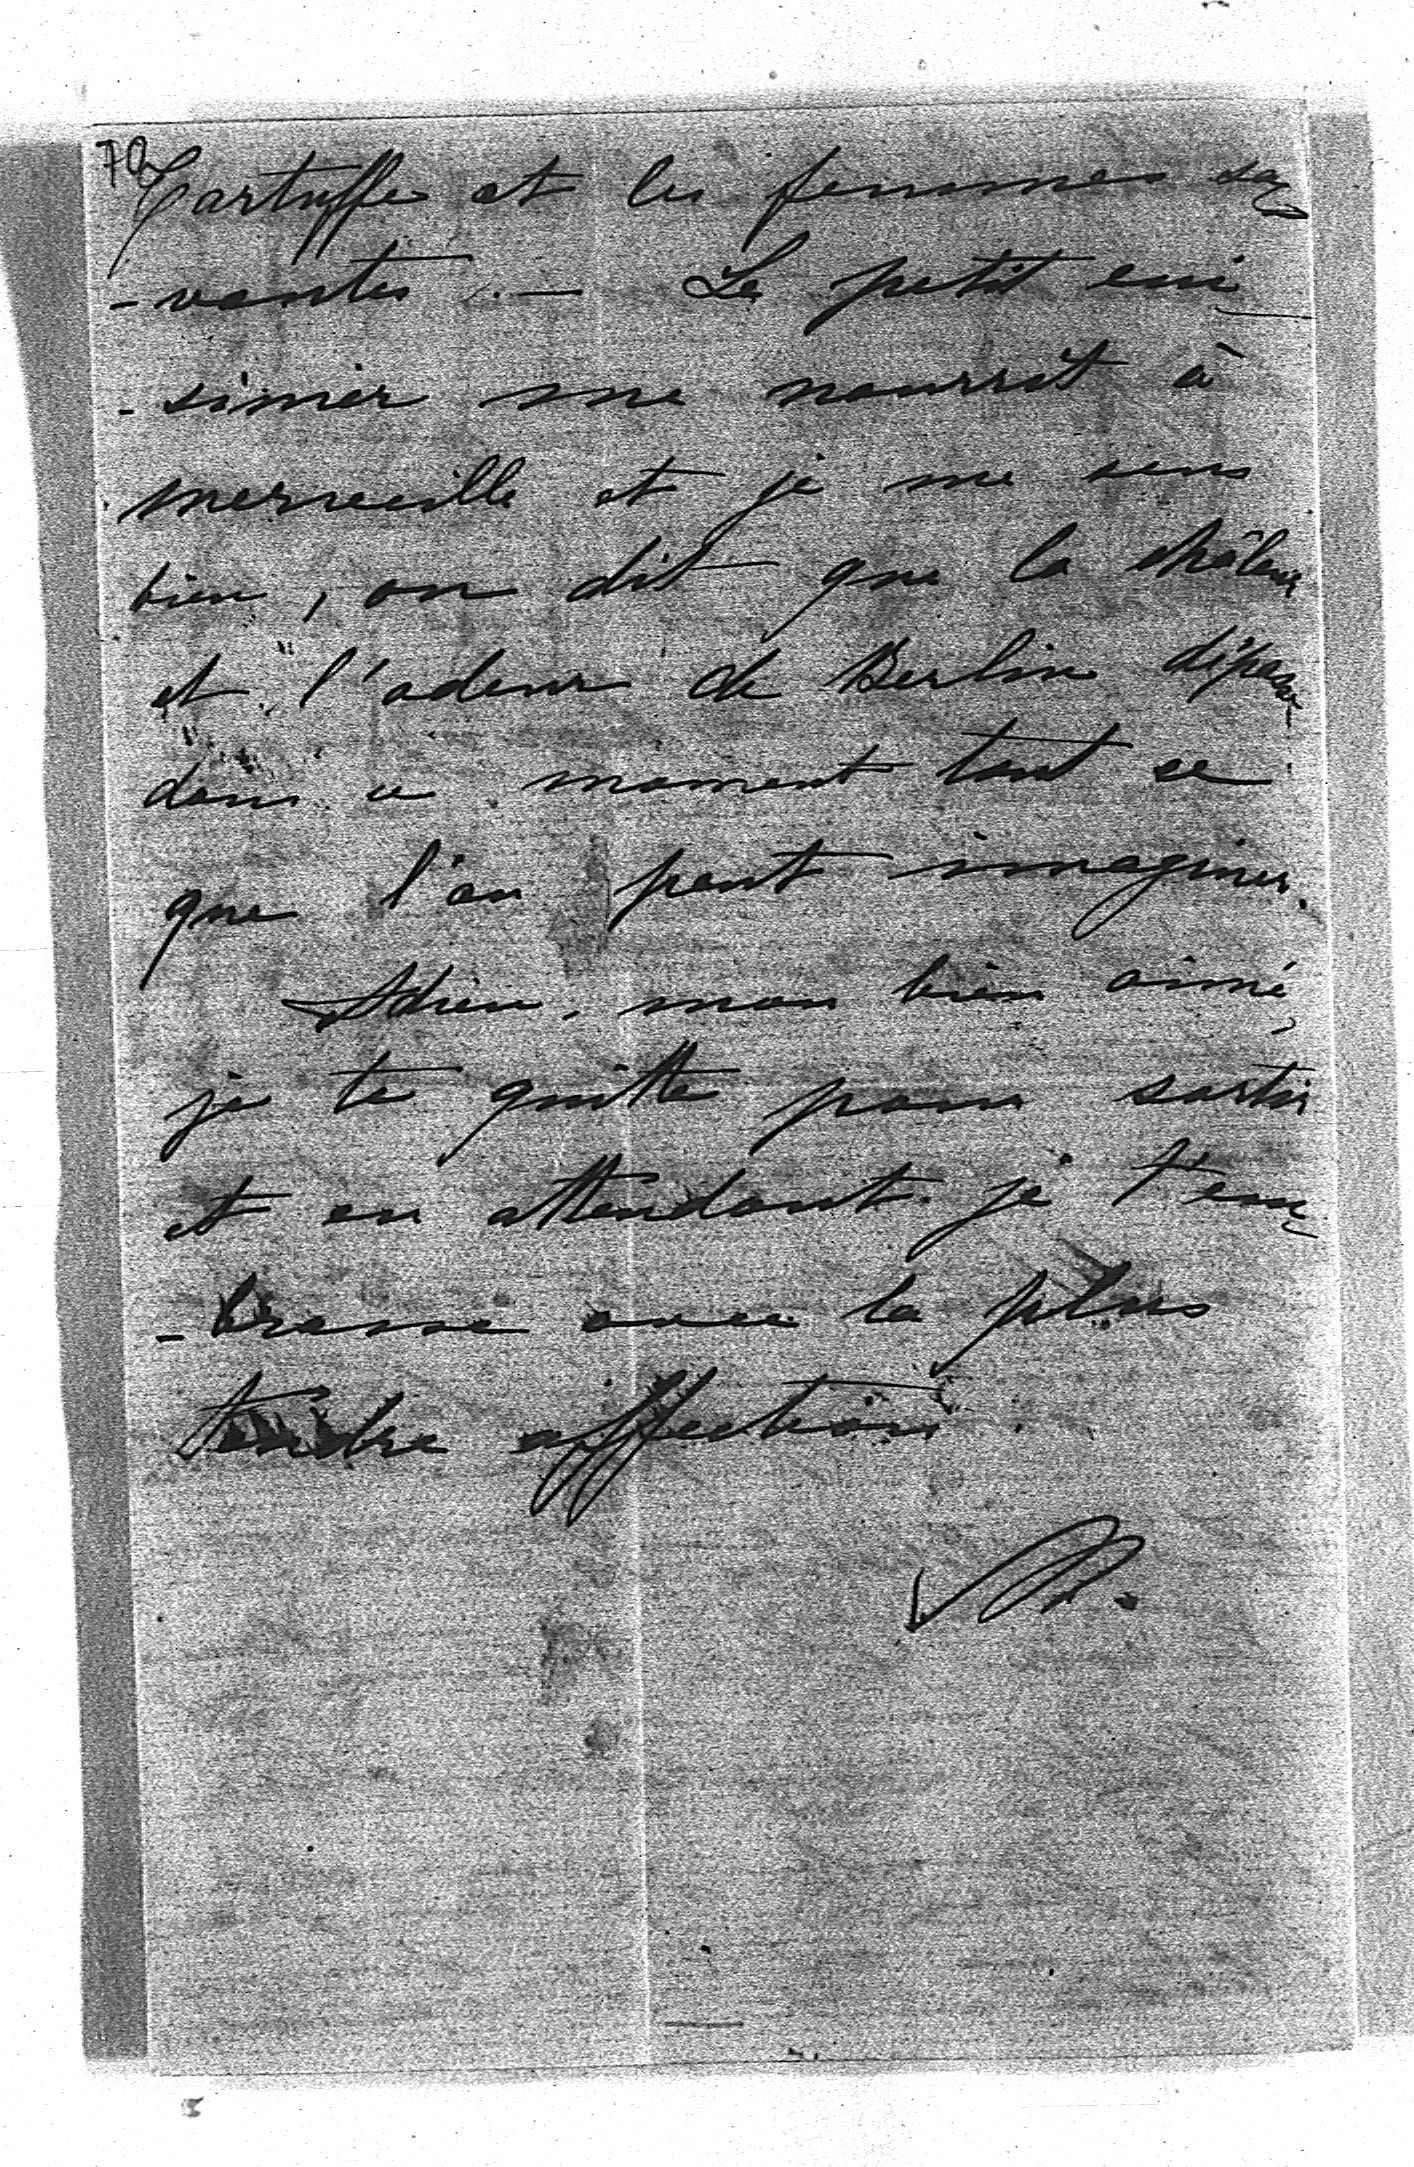 Tartuffe et les femmes sa-
-vantes. — Le petit cui-
-sinier me nourrit à
merveille et je me sens
bien, on dit que la chaleur
et l'odeur de Berlin dépasse
dans ce moment tout ce
que l'on peut imaginer.
Adieu, mon bien aimé,
je te quitte pour sortir
et en attendant je t'em-
-brasse avec la plus
tendre affection.